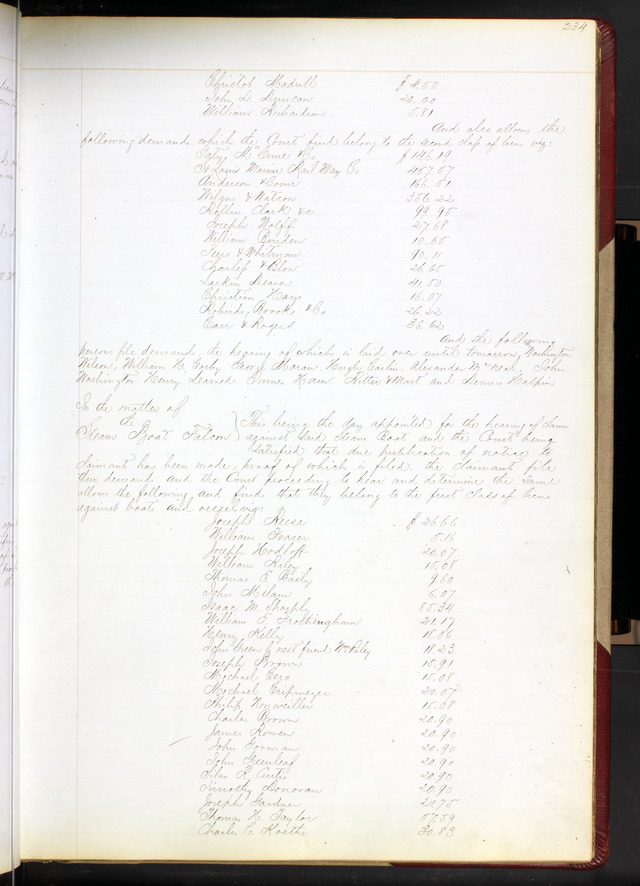 234
Christob Madrill $ 4.50
John L Duncan 20.00
William Richardson 5.81
And also allows the
following demands which the Court find belong to the second class of liens viz:
& Co $ 146.19
St Louis Marine Rail Way Co 457.57
Anderson & 166.51
& Watson 356.22
Rollin Clark & c 99.95
Joseph Wolff 27.68
William Burden 10.65
& Whitman 90.11
Charless & Blow 26.65
Larkin Deaver 41.50
Christian Hays 16.07
Roberts, Brooks & Co. 26.22
Carr & Rogers 36.62
And the following
persons file demands, the hearing of which is laid over until tomorrow, Washington
Wilson, William H. George Moran Hugh Carlin, Alexander McNeal, John
Washington Henry Learned James Ritter & and Dennis Halpin
In the matter of
the
Steam Boat Falcon ) This being the day appointed for the hearing of claims
against said Steam Boat and the Court being
satisfied that due publication of notice to
claimants has been made, proof of which is filed. the claimants file
their demands and the Court proceeding to hear and determine the same
allows the following, and find that they belong to the first class of liens
against boats and vessels viz:
Joseph Reese $ 26.66
William Fraser 5.16
Joseph 20.07
William Riley 15.08
Thomas E. Baily 9.60
John Milam 6.07
Isaac M. Sharply 85.34
William F. Frothingham 21.17
Henry Kelly 18.06
John Green by next friend Wm Riley 18.23
Joseph Brown 15.91
Michael 15.08
Michael Cripmeyer 20.07
Philip Nonweiller 15.08
Charles Brown 20.90
James Romen 20.90
John Gorman 20.90
John Greenleaf 20.90
Silas R. Curtis 20.90
Timothy Donovan 20.90
Joseph Gardner 24.75
Thomas H. Taylor 57.59
Charles C. Koethe 30.83